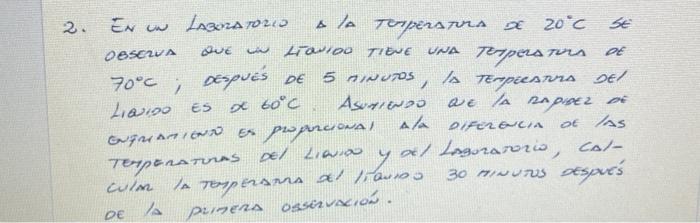 2. EN UN LABORATORIO A la TEMPERATURA DE 20°C SE
OBSERVA QUE UN LÍQUIDO TIENE UNA TEMPERATURA DE
70°C ; DESPUÉS DE 5 MINUTOS, la TEMPERATURA DEl
LÍQUIDO ES DE 60°C. ASUMIENDO QUE lA RAPIDEZ DE
ENFRIAMIENTO ES PROPORCIONAl A la DIFERENCIA DE las
TEMPERATURAS DEl LÍQUIDO y DEl LABORATORIO, CAl-
CUlAR lA TEMPERATURA DEl LÍQUIDO 30 MINUTOS DESPUÉS
DE lA PRIMERA OBSERVACIÓN.